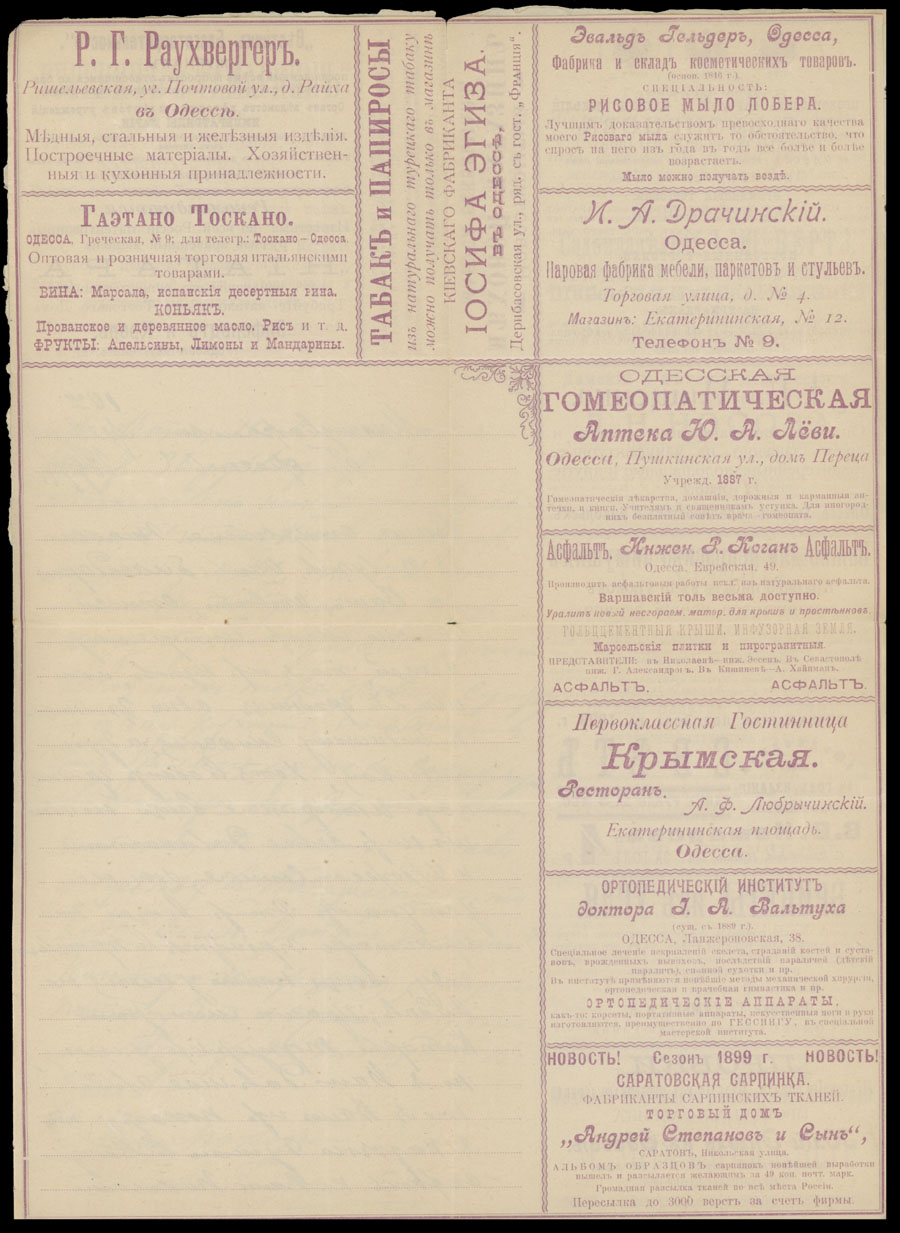 Р. Г. Раухвергеръ.
Ришельевская, уг. Почтовой ул., д. Райха
въ Одессѣ.
Мѣдныя, стальныя и желѣзныя издѣлія.
Построечные матеріалы. Хозяйствен-
ныя и кухонныя принадлежности.
Гаэтано Тоскано.
ОДЕССА, Греческая, № 9; для телегр.: Тоскано—Одесса
Оптовая и розничная торговля итальянскими
товарами.
ВИНА: Марсала, испанскія десертныя вина.
КОНЬЯКЪ.
Прованское и деревянное масло, Рисъ и т. д.
ФРУКТЫ: Апельсины, Лимоны и Мандарины.
ТАБАКЪ и ПАПИРОСЫ
изъ натуральнаго турецкаго табаку
можно получать только въ магазинѣ
КІЕВСКАГО ФАБРИКАНТА
ІОСИФА ЭГИЗА.
ВЪ ОДЕССѢ,
Дерибасовская ул., ряд. съ гост. „Франція“.
Эвальдъ Гельдеръ, Одесса,
Фабрика и складъ косметическихъ товаровъ.
(основ. 1846 г.).
СПЕЦІАЛЬНОСТЬ:
РИСОВОЕ МЫЛО ЛОБЕРА.
Лучшимъ доказательствомъ превосходнаго качества
моего Рисоваго мыла служитъ то обстоятельство, что
спросъ на него изъ года въ годъ все болѣе и болѣе
возрастаетъ.
Мыло можно получать вездѣ.
И. А. Драчинскій.
Одесса.
Паровая фабрика мебели, паркетовъ и стульевъ.
Торговая улица, д. № 4.
Магазинъ: Екатерининская, № 12.
Телефонъ № 9.
ОДЕССКАЯ
ГОМЕОПАТИЧЕСКАЯ
Аптека Ю. А. Лёви.
Одесса, Пушкинская ул., домъ Переца
Учрежд. 1887 г.
Гомеопатическія лѣкарства, домашнія, дорожныя и карманныя ап-
течки, и книги. Учителямъ и священникамъ уступка. Для иногород-
нихъ безплатный совѣтъ врача-гомеопата.
Асфальтъ. Инжен. Р. Коганъ Асфальтъ.
Одесса, Еврейская, 49.
Производитъ асфальтовыя работы искл. изъ натуральнаго асфальта.
Варшавскій толь весьма доступно.
Уралитъ новый несгораем. матер. для крышъ и простѣнковъ.
ГОЛЬЦЦЕМЕНТНЫЯ КРЫШИ, ИНФУЗОРНАЯ ЗЕМЛЯ.
Марсельскія плитки и пирогранитныя.
ПРЕДСТАВИТЕЛИ: въ Николаевѣ—инж. Эссенъ. Въ Севастополѣ
инж. Г. Александровъ. Въ Кишиневѣ—А. Хайманъ.
АСФАЛЬТЪ. АСФАЛЬТЪ.
Первоклассная Гостинница
Крымская.
Ресторанъ.
А. Ф. Любрычинскій.
Екатерининская площадь.
Одесса.
ОРТОПЕДИЧЕСКІЙ ИНСТИТУТЪ
доктора І. Я. Вальтуха
(сущ. съ 1889 г.).
ОДЕССА, Ланжероновская, 38.
Спеціальное леченіе искривленій скелета, страданій костей и суста-
вовъ, врожденныхъ вывиховъ, послѣдствій параличей (дѣтскій
параличъ), спинной сухотки и пр.
Въ институтѣ примѣняются новѣйшіе методы механической хирургіи,
ортопедическая и врачебная гимнастика и пр.
ОРТОПЕДИЧЕСКІЕ АППАРАТЫ,
какъ-то: корсеты, портативные аппараты, искусственныя ноги и руки
изготовляются, преимущественно по ГЕССИНГУ, въ спеціальной
мастерской института.
НОВОСТЬ! Сезонъ 1899 г. НОВОСТЬ!
САРАТОВСКАЯ САРПИНКА.
ФАБРИКАНТЫ САРПИНСКИХЪ ТКАНЕЙ.
ТОРГОВЫЙ ДОМЪ
„Андрей Степановъ и Сынъ“,
САРАТОВЪ, Никольская улица.
АЛЬБОМЪ ОБРАЗЦОВЪ сарпинокъ новѣйшей выработки
вышелъ и разсылается желающимъ за 49 коп. почт. марк.
Громадная разсылка тканей по всѣ мѣста Россіи.
Пересылка до 3000 верстъ за счетъ фирмы.